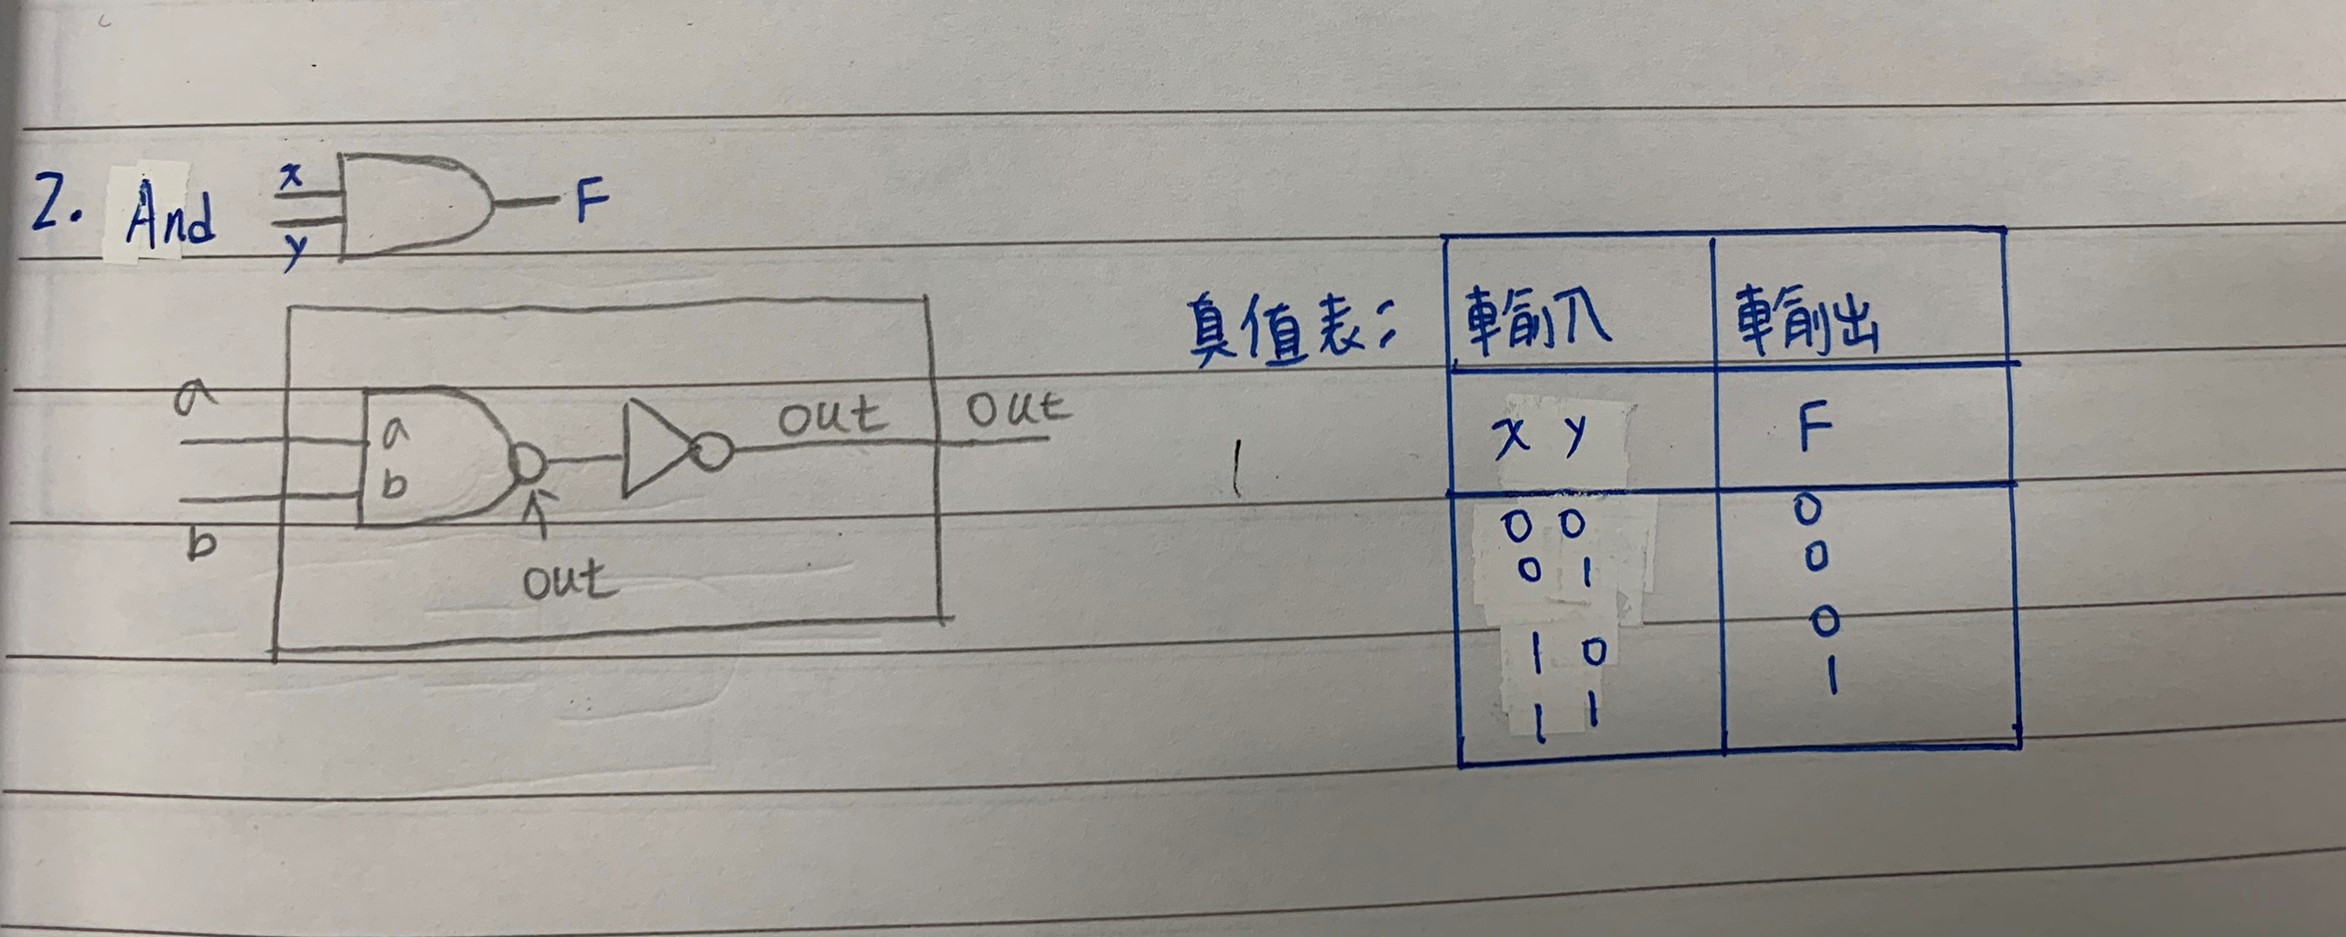 2. And
x
y
F
a
b
a
b
out
out
out
真值表:
輸入 輸出
x y F
0 0 0
0 1 0
1 0 0
1 1 1